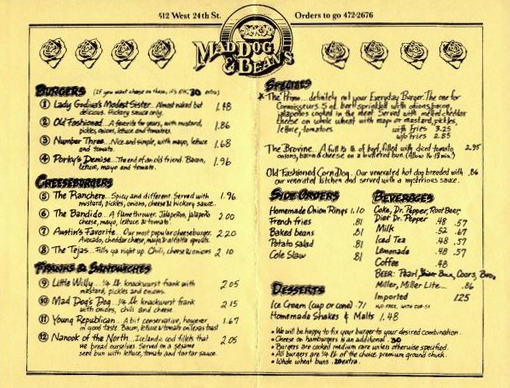 512 West 24th St.
Orders to go 472-2676
MAD DOG
& BEANS
BURGERS (If you want cheese on these, it's ok, 30 extra)
1 Lady Godiva's Modest Sister. Almost naked but
delicious. Hickory sauce only. 1.48
2 Old Fashioned. A favorite for years, with mustard,
pickles, onion, lettuce and tomatoes. 1.86
3 Number Three. Nice and simple, with mayo, lettuce
and tomato. 1.68
4 Porky's Demise. The end of an old friend. Bacon,
lettuce, mayo and tomato. 1.96
CHEESEBURGERS
5 The Ranchero. Spicy and different. Served with
mustard, pickles, onion, cheese & hickory sauce. 1.96
6 The Bandido. A flame thrower. Jalapeños, jalapeño
cheese, mayo, lettuce & tomato. 2.00
7 Austin's Favorite. Our most popular cheeseburger.
Avocado, cheddar cheese, mayo & alfalfa sprouts. 2.20
8 The Tejas. Fills ya right up. Chili, cheese & onions 2.10
FRANKS & SANDWICHES
9 Little Willy. 1/4 lb. knockwurst frank with
mustard, pickles and onions. 2.05
10 Mad Dog's Dog. 1/4 lb. knockwurst frank
with onions, chili and cheese 2.15
11 Young Republican. A bit conservative, however
in good taste. Bacon, lettuce & tomato on texas toast 1.67
12 Nanook of the North. Icelandic cod fillets that
we bread ourselves. Served on a sesame
seed bun with lettuce, tomato and tartar sauce. 2.05
SPECIALS
* The Primo... definitely not your Everyday Burger. The one for
Connoisseurs. 5 oz. beef sprinkled with onions, bacon,
jalapeños cooked in the meat. Served with melted cheddar
cheese on whole wheat with mayo or mustard, pickles,
lettuce, tomatoes
with Fries 3.25
w/o Fries 2.85
The Brovine. A full 1/2 lb of beef filled with diced tomato,
onions, bacon & cheese on a buttered bun. 2.95
Old Fashioned Corn Dog. Our venerated hot dog breaded with
our venerated kitchen and served with a mysterious sauce. .86
SIDE ORDERS
Homemade Onion Rings 1.10
French fries .81
Baked beans .81
Potato salad .81
Cole Slaw .81
BEVERAGES
Coke, Dr. Pepper, Root Beer,
Diet Dr. Pepper .48 .57
Milk .52 .67
Iced Tea .48 .57
Lemonade .48 .57
Coffee .48
BEER: Pearl, Bux, Coors, Bud,
Miller, Miller Lite... .86
Imported 1.25
DESSERTS
Ice Cream (cup or cone) .71
Homemade Shakes & Malts 1.48
• We will be happy to fix your burger to your desired combination.
• Cheese on hamburgers is an additional .30
• Burgers are cooked medium rare unless otherwise specified.
• All burgers are 1/4 lb of the choice premium ground chuck.
• Whole wheat buns .20 extra.